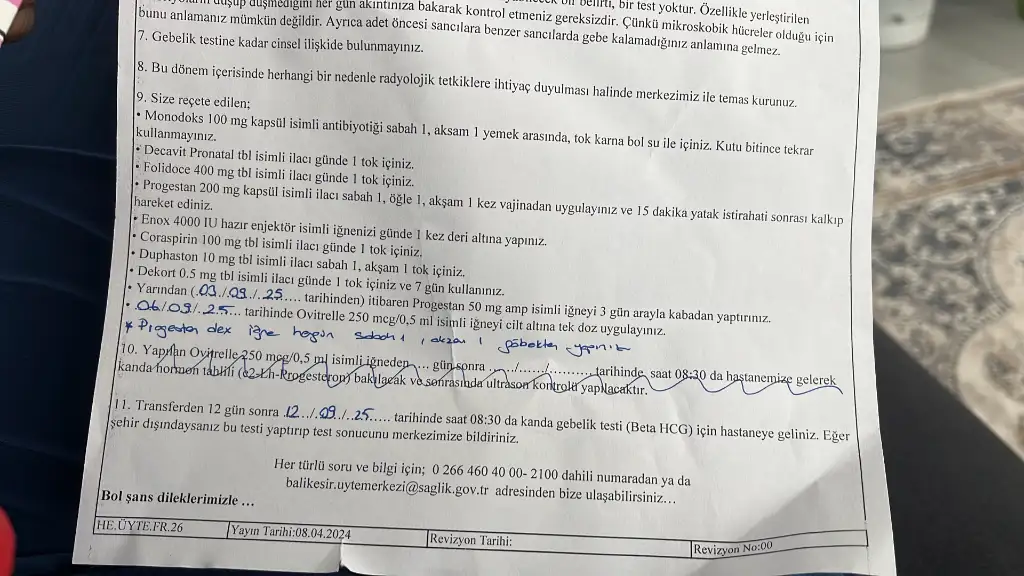 düşüp düşmediğini her gün akıntınıza bakarak kontrol etmeniz gereksizdir. Çünkü mikroskobik hücreler olduğu için
belirti, bir test yoktur. Özellikle yerleştirilen
bunu anlamanız mümkün değildir. Ayrıca adet öncesi sancılara benzer sancılarda gebe kalamadığınız anlamına gelmez.
7. Gebelik testine kadar cinsel ilişkide bulunmayınız.
8. Bu dönem içerisinde herhangi bir nedenle radyolojik tetkiklere ihtiyaç duyulması halinde merkezimiz ile temas kurunuz.
9. Size reçete edilen;
• Monodoks 100 mg kapsül isimli antibiyotiği sabah 1, aksam 1 yemek arasında, tok karna bol su ile içiniz. Kutu bitince tekrar
kullanmayınız.
• Decavit Pronatal tbl isimli ilacı günde 1 tok içiniz.
• Folidoce 400 mg tbl isimli ilacı günde 1 tok içiniz.
• Progestan 200 mg kapsül isimli ilacı sabah 1, öğle 1, akşam 1 kez vajinadan uygulayınız ve 15 dakika yatak istirahati sonrası kalkıp
hareket ediniz.
• Enox 4000 IU hazır enjektör isimli iğnenizi günde 1 kez deri altına yapınız.
• Coraspirin 100 mg tbl isimli ilacı günde 1 tok içiniz.
• Duphaston 10 mg tbl isimli ilacı sabah 1, akşam 1 tok içiniz.
• Dekort 0.5 mg tbl isimli ilacı günde 1 tok içiniz ve 7 gün kullanınız.
• Yarından (.03./.09./.25.... tarihinden) itibaren Progestan 50 mg amp isimli iğneyi 3 gün arayla kabadan yaptırınız.
• .06/09/.25... tarihinde Ovitrelle 250 mcg/0,5 ml isimli iğneyi cilt altına tek doz uygulayınız.
* Progestan dex iğne hergün sabah 1, akşam 1 göbekten yapınız
10. Yapılan Ovitrelle 250 mcg/0,5 ml isimli iğneden.... gün sonra ...../....../.......... tarihinde, saat 08:30 da hastanemize gelerek
kanda hormon tahlili (e2-Lh-Progesteron) bakılacak ve sonrasında ultrason kontrolü yapılacaktır.
11. Transferden 12 gün sonra .12../.09./..25..... tarihinde saat 08:30 da kanda gebelik testi (Beta HCG) için hastaneye geliniz. Eğer
şehir dışındaysanız bu testi yaptırıp test sonucunu merkezimize bildiriniz.
Her türlü soru ve bilgi için; 0 266 460 40 00- 2100 dahili numaradan ya da
balikesir.uytemerkezi@saglik.gov.tr adresinden bize ulaşabilirsiniz…
Bol şans dileklerimizle …
HE.ÜYTE.FR.26 Yayın Tarihi:08.04.2024 Revizyon Tarihi: Revizyon No:00